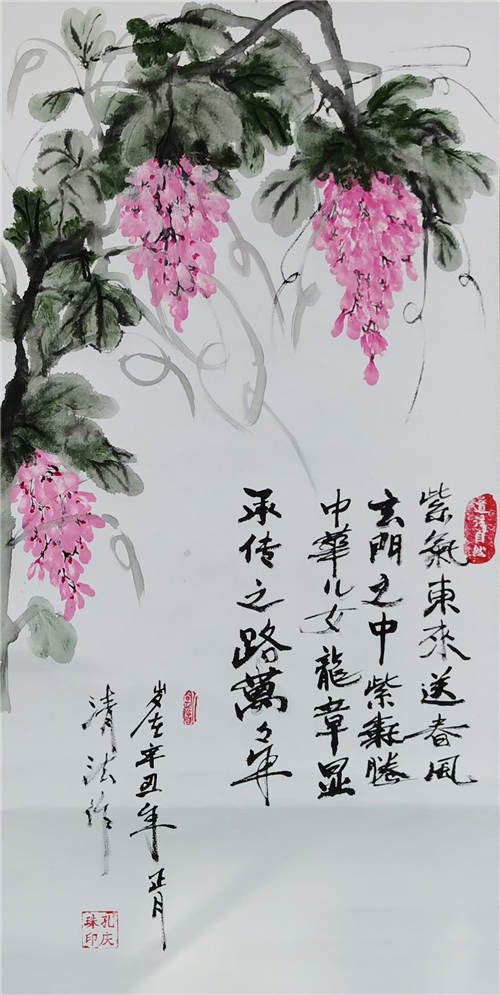 道法自然
紫氣東來送春風
玄門之中紫氣騰
中華儿女龍章显
承传之路萬々年
岁在辛丑年正月
清法作
孔庆
珠印